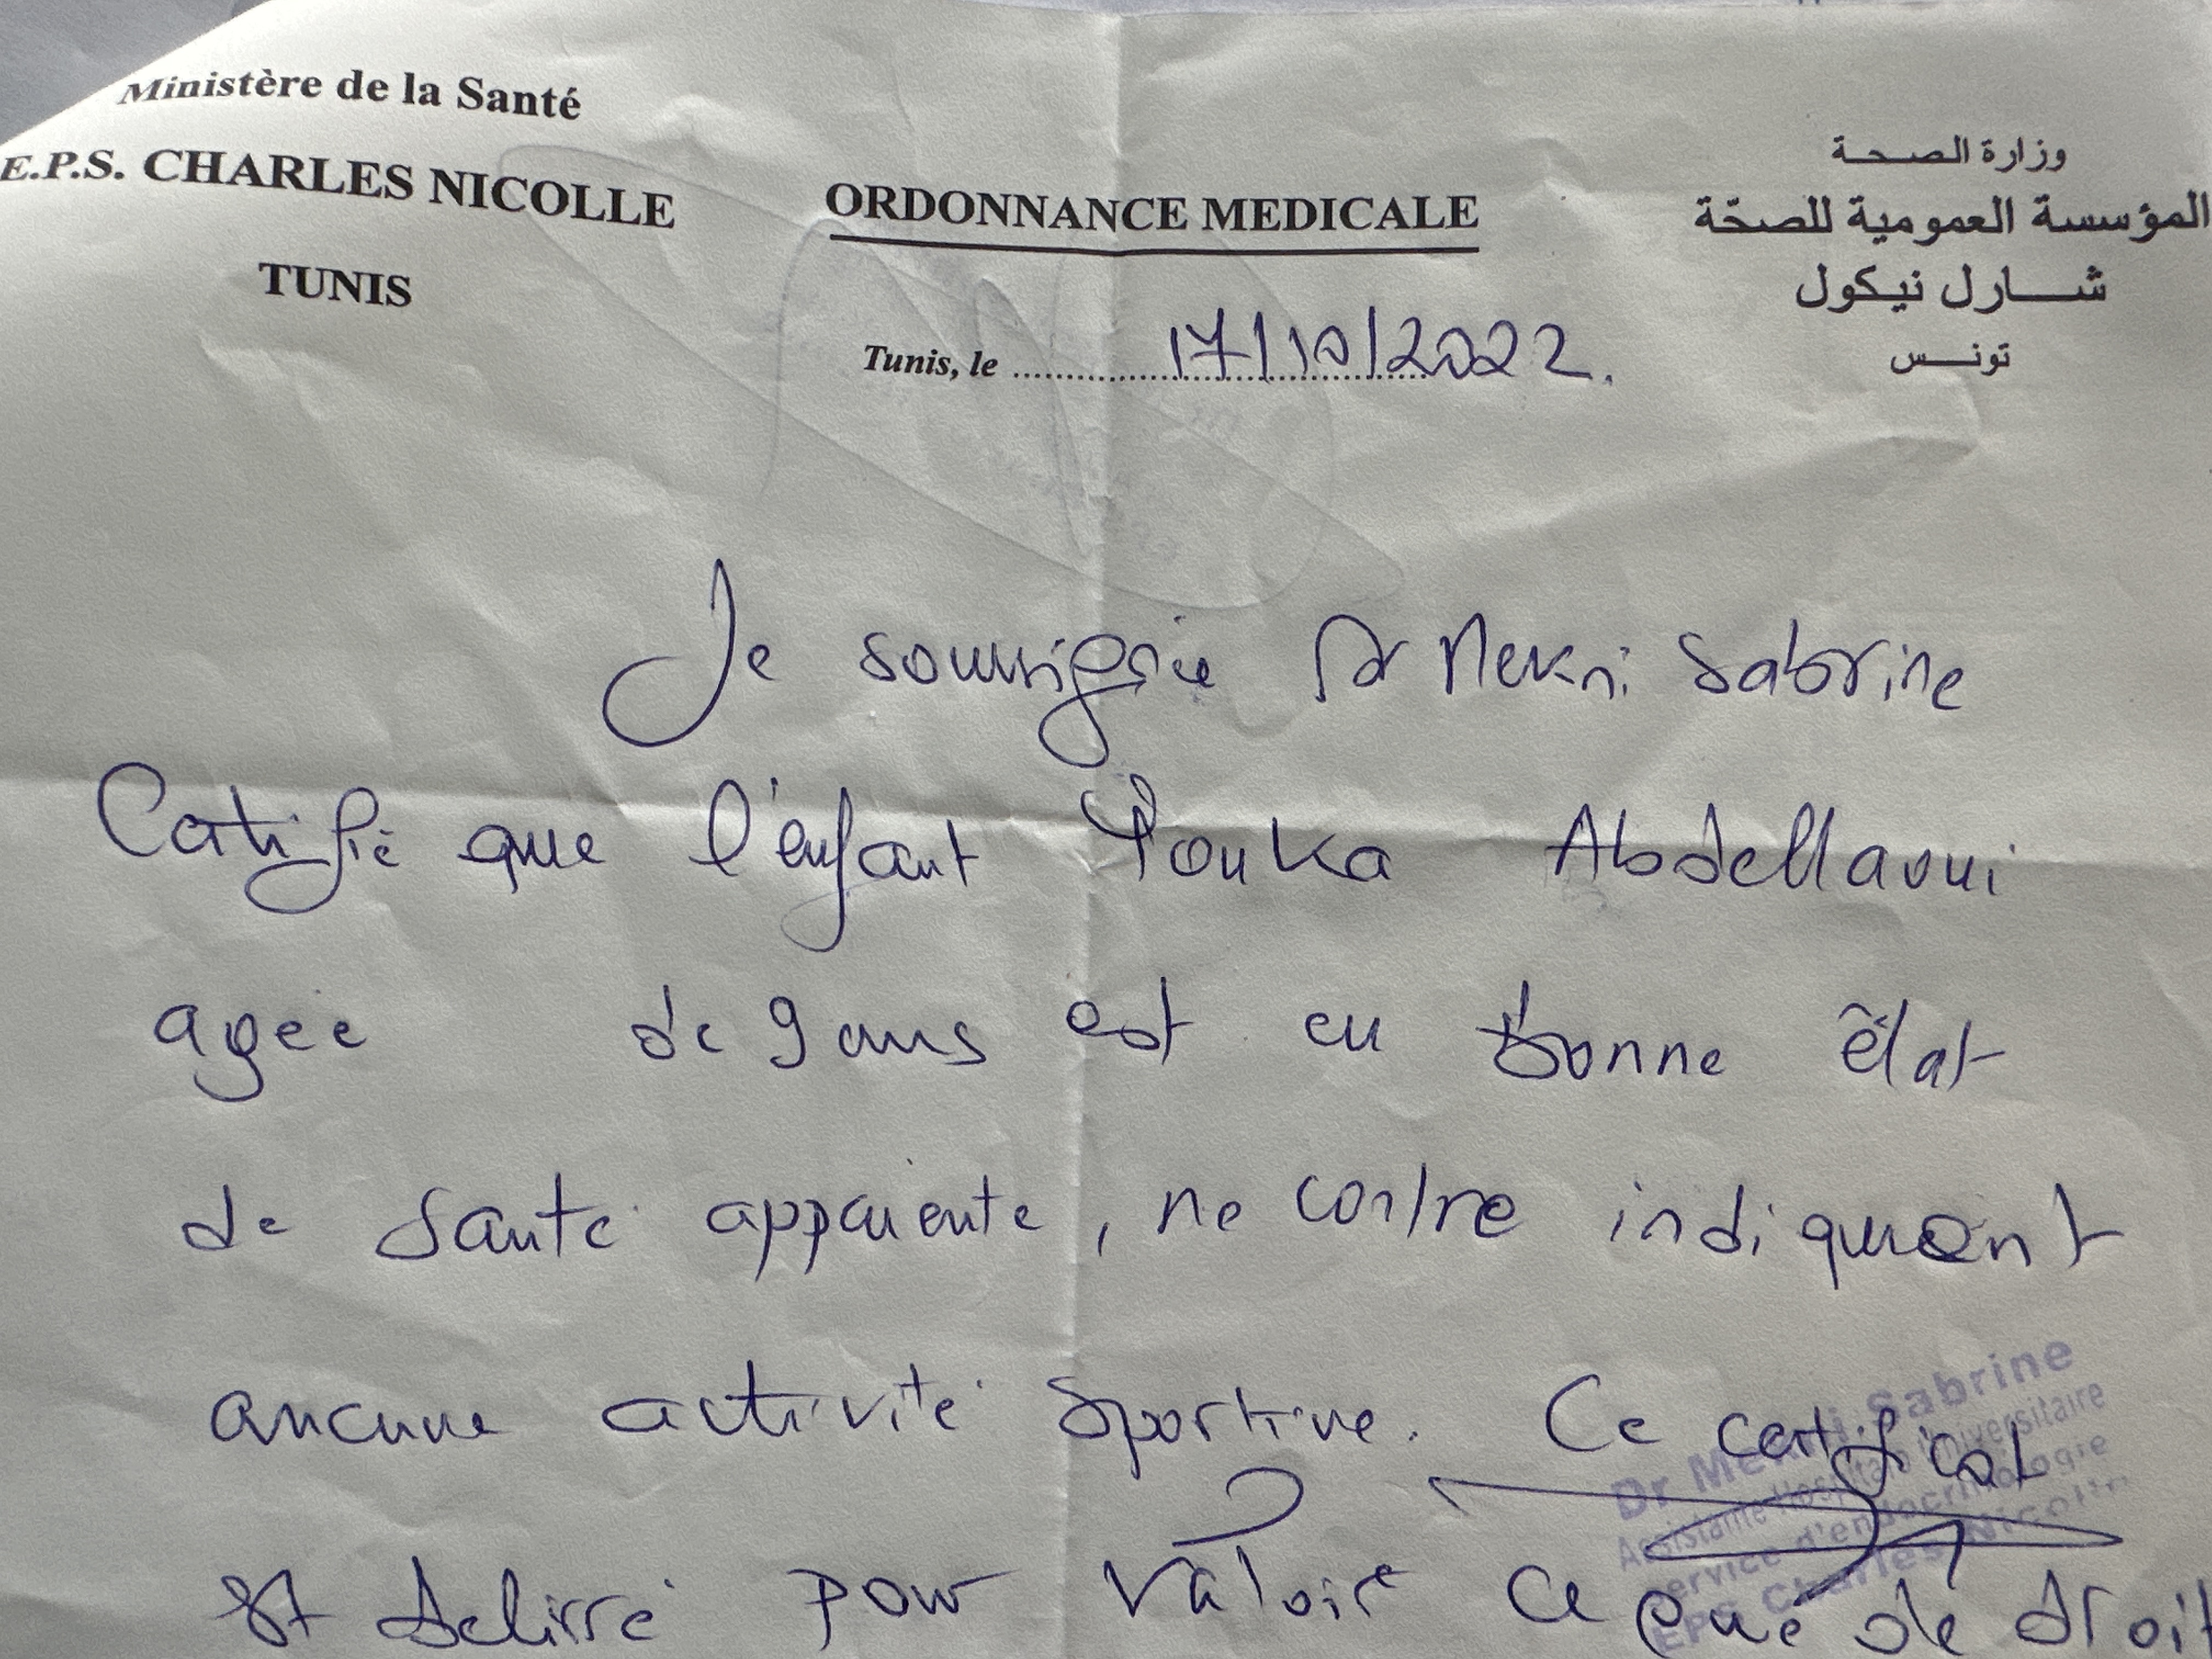 Ministère de la Santé
E.P.S. CHARLES NICOLLE
TUNIS
ORDONNANCE MEDICALE
Tunis, le 17/10/2022.
وزارة الصحة
المؤسسة العمومية للصحّة
شارل نيكول
تونس
Je soussignée Dr Mekni Sabrine
Certifie que l'enfant Abdellaoui
agée de 9 ans est en bonne état
de santé apparente, ne contre indiquant
aucune activité sportive. Ce certificat
est delivré pour valoir ce que de droit
Dr Mekni Sabrine
Assistante Hospitalo Universitaire
Service d'endocrinologie
EPS Charles Nicolle